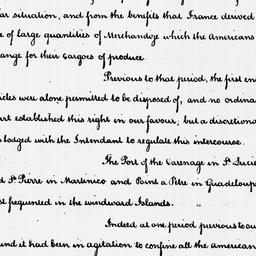 ar situation, and from the benefits that France derived
e of large quantities of Merchandize which the Americans
ange for their Cargoes of produce.
Previous to that period, the first en
icles were alone permitted to be disposed of, and no ordina
urt established this right in our favour; but a discretiona
s lodged with the Intendant to regulate this intercourse.
The Port of the Carenage in St. Lucie
d St. Pierre in Martinico and Point a Petre in Guadeloup
st frequented in the windward Islands.
Indeed at one period previous to ou
und it had been in agitation to confine all the american